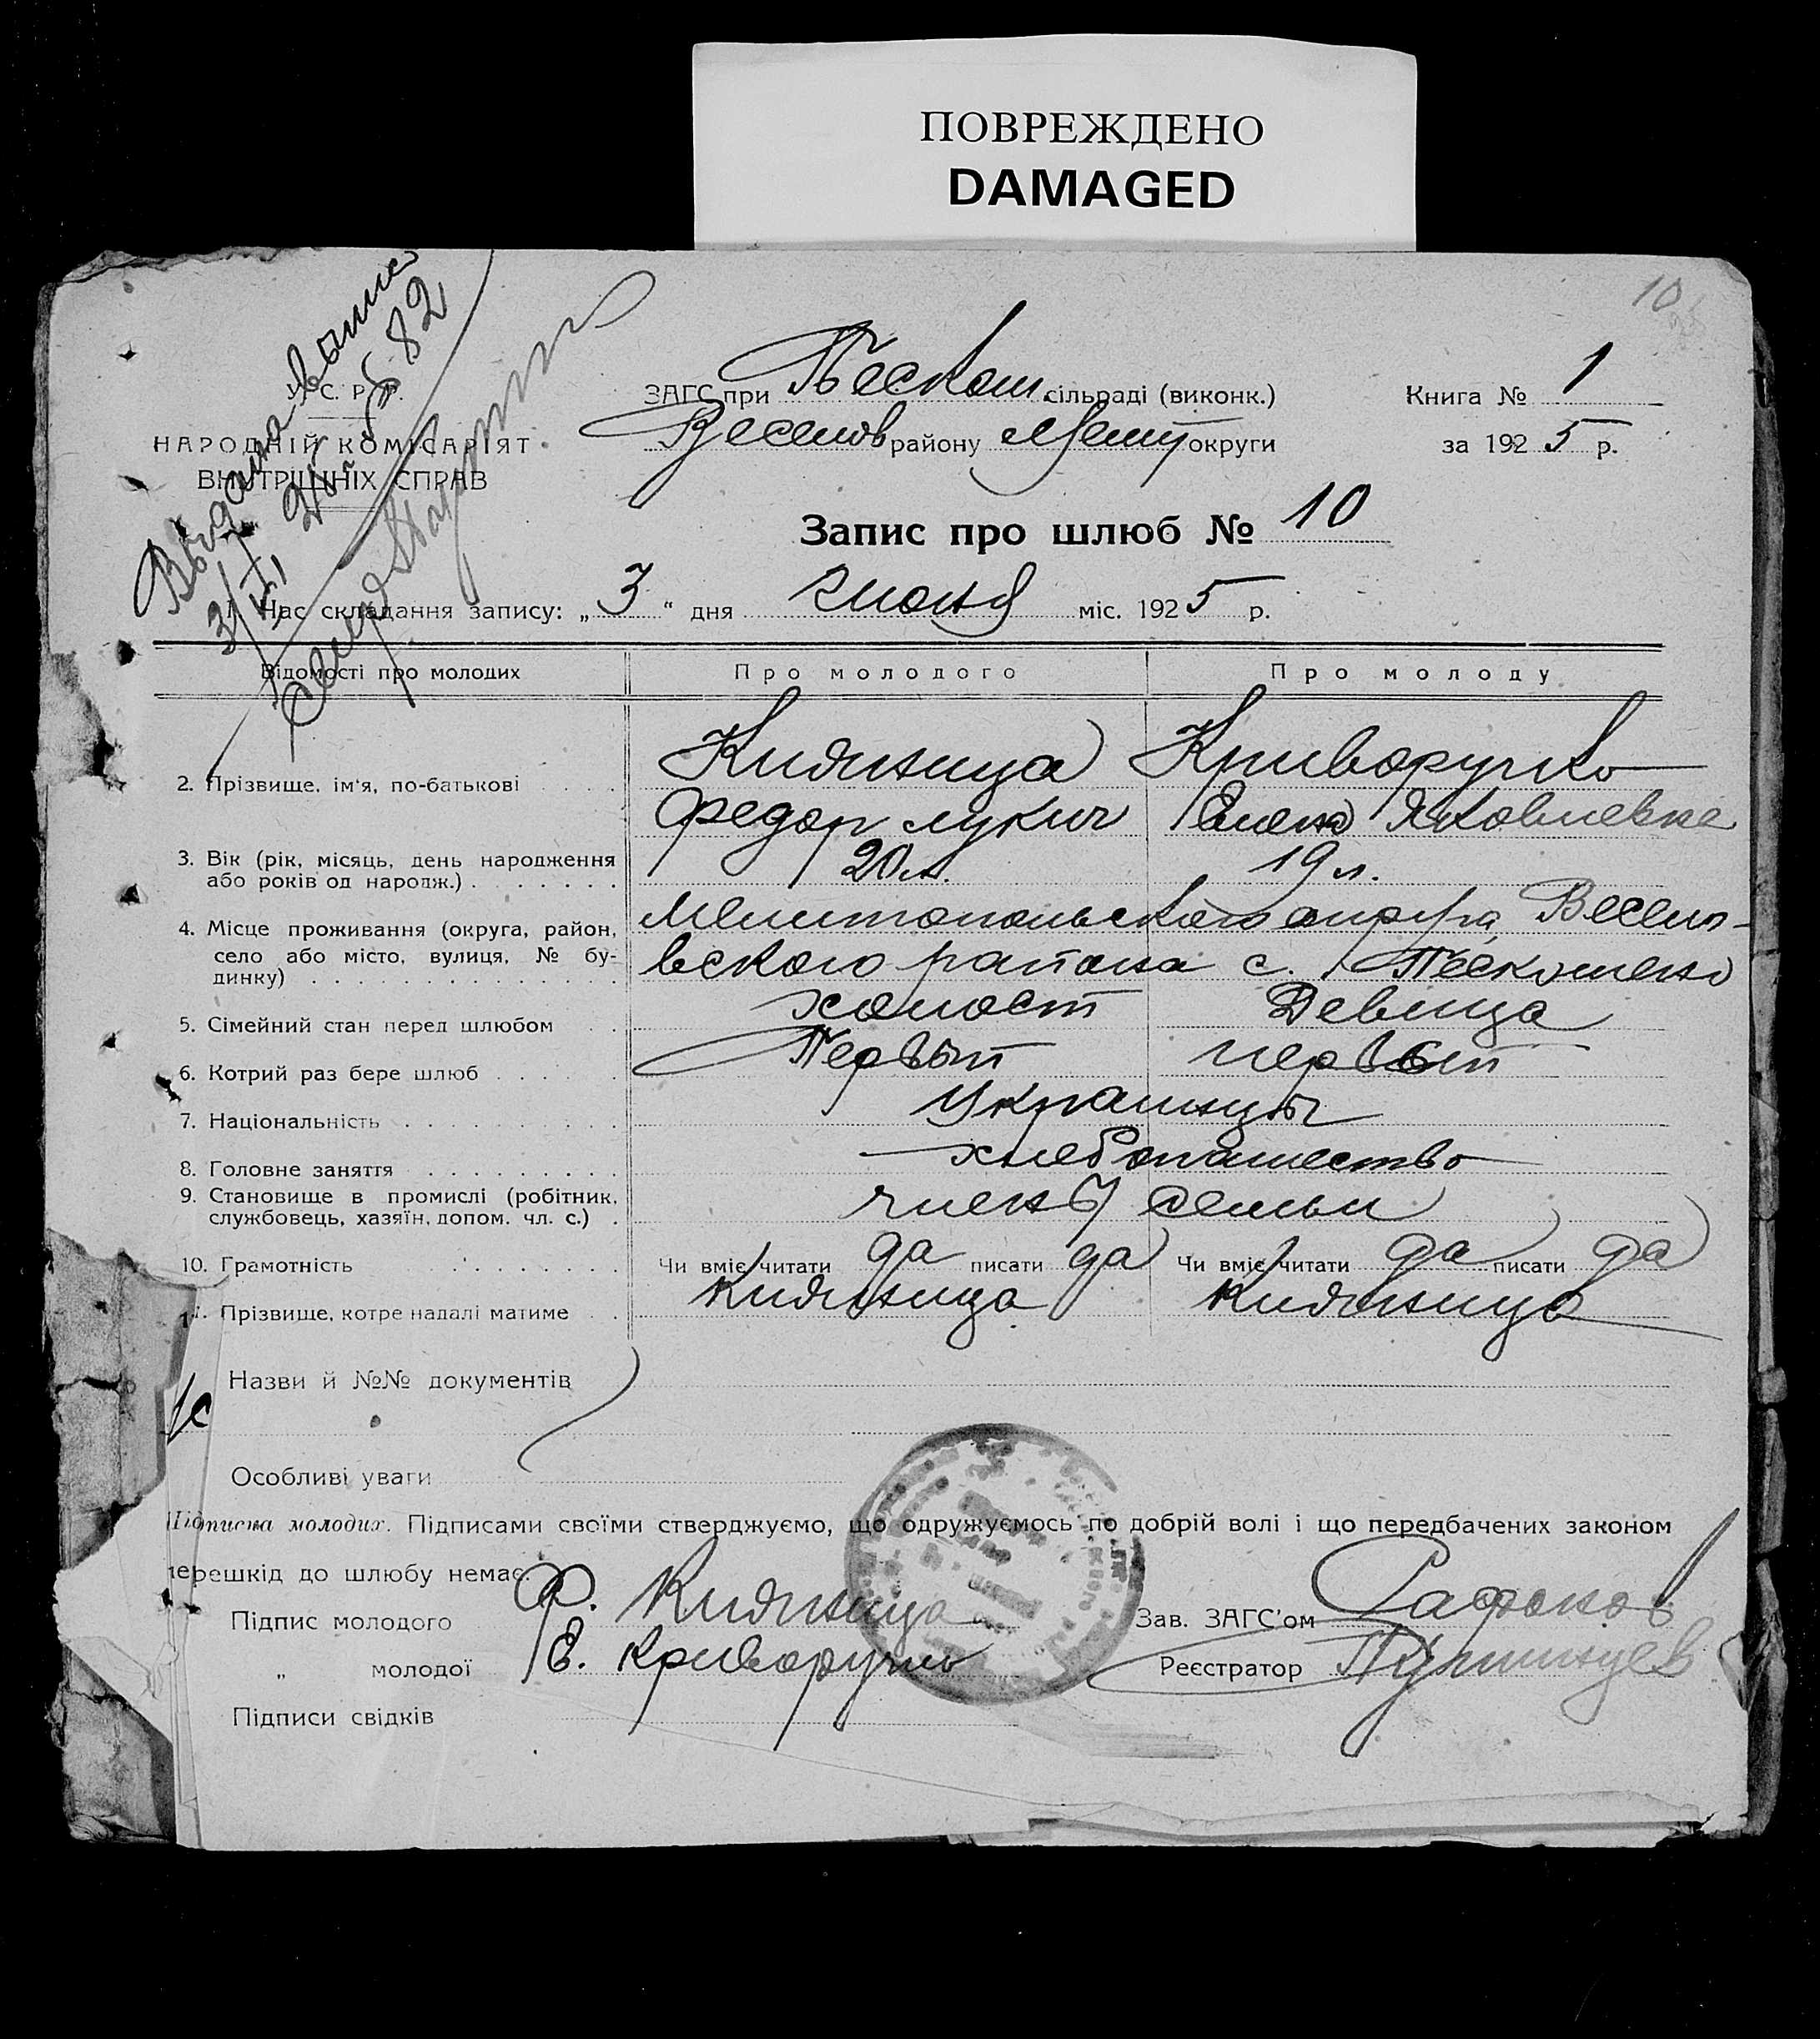 ПОВРЕЖДЕНО
DAMAGED
10
Выдана выпис
3/VI 26 г. № 82
У. С. Р. Р.
НАРОДНІЙ КОМІСАРІЯТ
ВНУТРІШНІХ СПРАВ
ЗАГС при Пескош. сільраді (виконк.)
Веселов району Мелит округи
Книга № 1
за 1925 р.
Запис про шлюб № 10
1. Час складання запису: „3“ дня Июня міс. 1925 р.
Відомості про молодих Про молодого Про молоду
2. Прізвище, ім'я, по-батькові Кияница Криворучко
Федор Лукич Елена Яковлевна
3. Вік (рік, місяць, день народження 20 л. 19 л.
або років од народж.)
4. Місце проживання (округа, район, Мелитопольского округа, Весело-
село або місто, вулиця, № бу- вского района с. Пескошено
динку)
5. Сімейний стан перед шлюбом холост Девица
6. Котрий раз бере шлюб Первый первый
7. Національність Украинцы
8. Головне заняття хлебопашество
9. Становище в промислі (робітник, члены семьи
службовець, хазяїн, допом. чл. с.)
10. Грамотність Чи вміє читати да писати да Чи вміє читати да писати да
11. Прізвище, котре надалі матиме Кияница Кияница
Назви й №№ документів
Особливі уваги
Підписка молодих. Підписами своїми стверджуємо, що одружуємось по добрій волі і що передбачених законом
перешкід до шлюбу немає.
Підпис молодого Ф. Кияница Зав. ЗАГС'ом
„ молодої Е. Криворучко Реєстратор
Підписи свідків